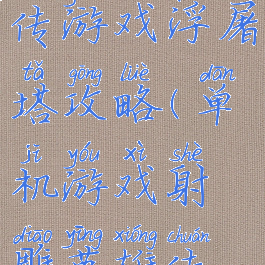 传游戏浮屠
tǎ gōng lüè dān
塔攻略(单
jī yóu xì shè
机游戏射
diāo yīng xióng chuán
雕英雄传